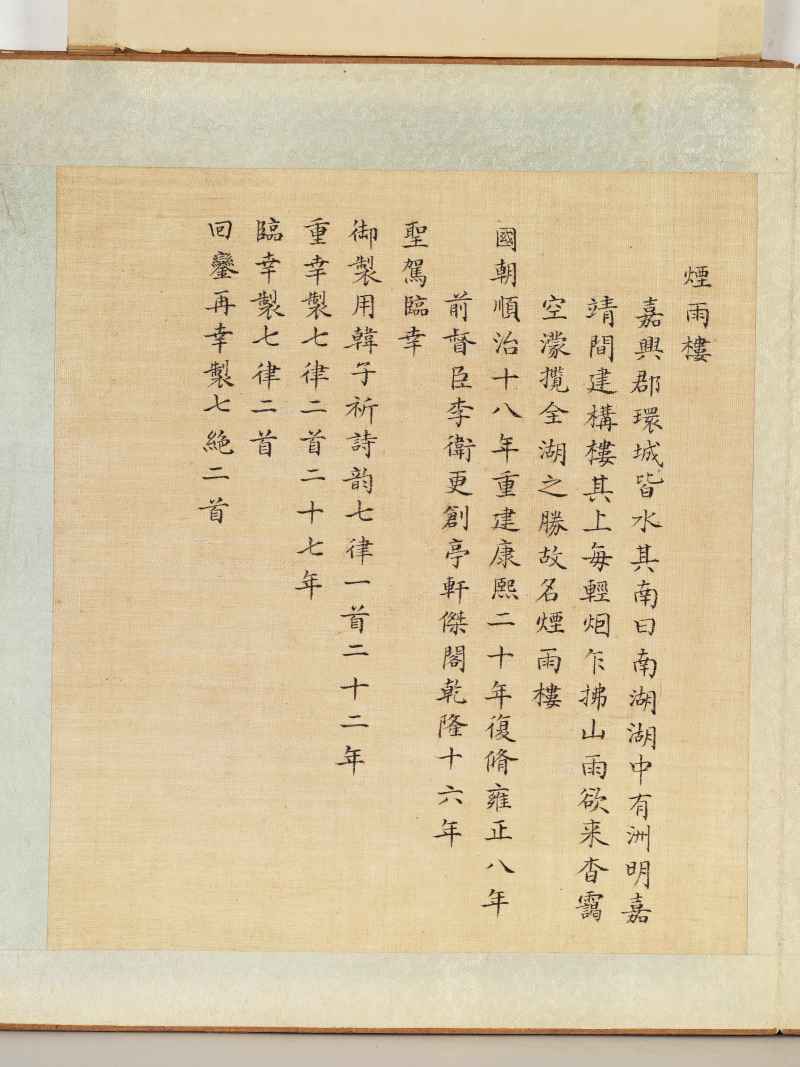 煙雨樓
嘉興郡環城皆水其南曰南湖湖中有洲明嘉
靖間建構樓其上每輕烟乍拂山雨欲来杳靄
空濛攬全湖之勝故名煙雨樓
國朝順治十八年重建康熙二十年復脩雍正八年
前督臣李衛更創亭軒傑閣乾隆十六年
聖駕臨幸
御製用韓子祈詩韵七律一首二十二年
重幸製七律二首二十七年
臨幸製七律二首
回鑾再幸製七絶二首